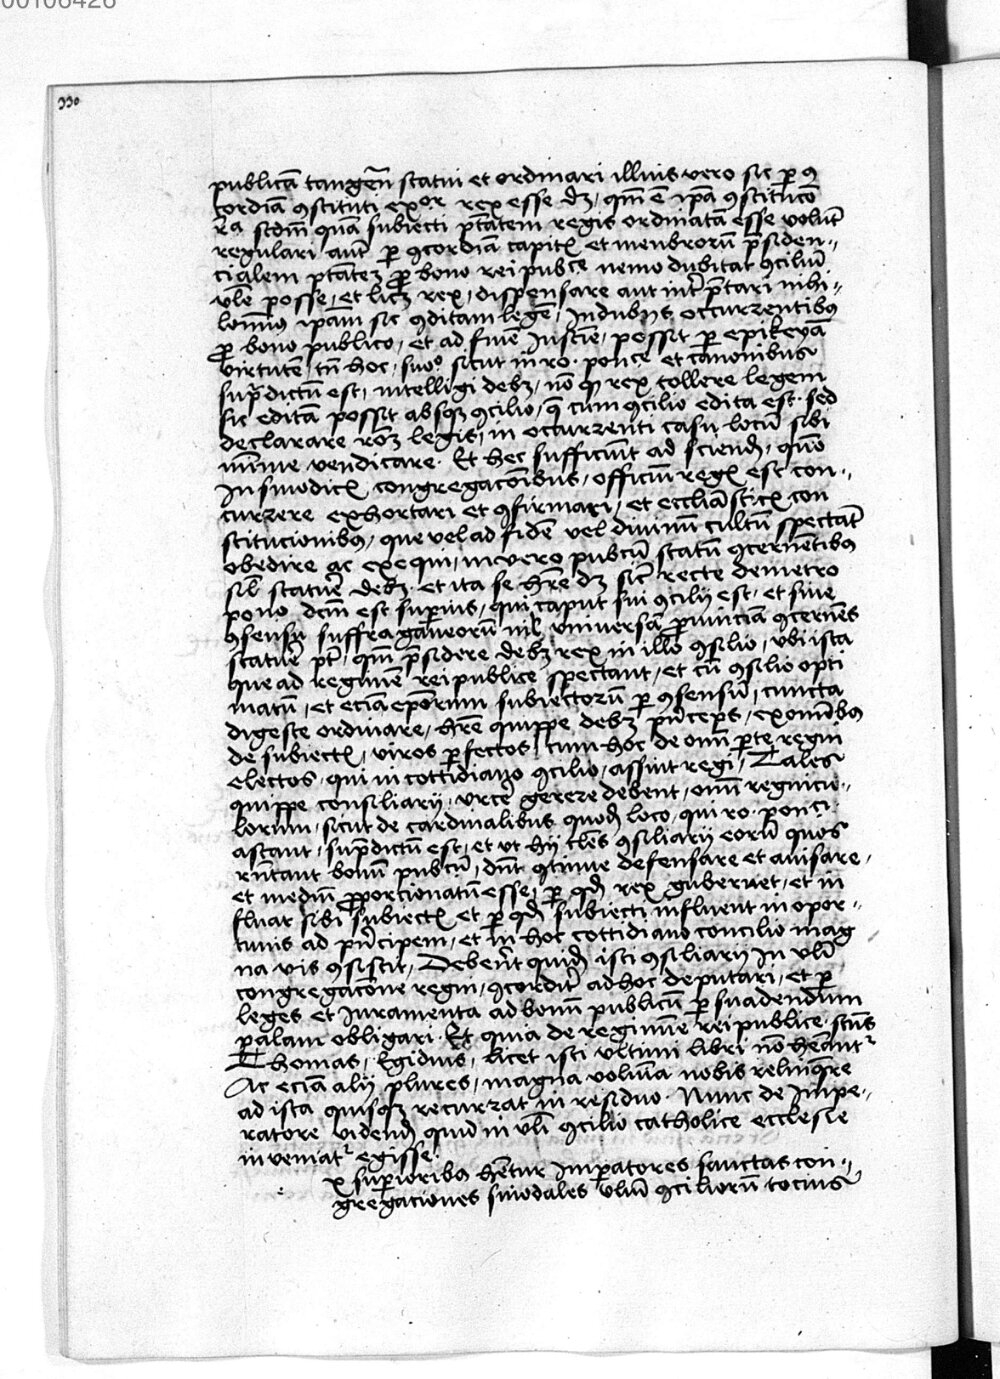 00106426
330
publicā tangeñ statui et ordinari illius vero sic ꝑ ꝯ
cordiā ꝯstituti exor rex esse dꝫ, qm̄ ē ip̄a ꝯstitucō
sedm̄ quā subiecti ptātem regis ordinatā esse volūt
regulari aut̄ ꝑ ꝯcordiā capitꝭ et menbrorū p̄siden-
cialem ptātez ꝓ bono rei pubce nemo dubitat ꝯciliū
vlē posse, et licꝫ rex, dispensare aut int̄p̄tari nihi-
lomīus ip̄am sic ꝯditam legē, Indubijs occurrentibus
ꝓ bono publico, et ad finē Iusticie, possit ꝑ epikeyā
virtutē, tn̄ hoc, suo sicut in ro. ponce et canonibus
sup̄dictū est, intelligi debꝫ, nō ꝙ rex tollere legem
sic editā possit absqꝫ ꝯcilio, q̄ cum ꝯcilio edita est. sed
declarare rōꝫ legis, in occurrenti casu locū sibi
mīme vendicare. Et hec sufficiūt ad sciendū, quō
In sinodicꝭ congregacōibus, officiū regꝭ est con-
currere exhortari et ꝯfirmari, et eccliāsticꝭ con
stitucionibus, que vel ad fidē vel diuinū cultū spectāt
obedire ac exequi, in vero pubcū statū ꝯcernētibus
sibi statuē debꝫ. et ita se hr̄e dꝫ sic̄ recte de metro
pono dcm̄ est superius, qui caput sui ꝯcilij est, et sine
ꝯsensu suffraganeorū nil vniuersā ꝓuinciā ꝯcernēs
statuē pt̄, qm̄ p̄sidere debꝫ rex in illo ꝯsilio, vbi ista
que ad regimē rei publice spectant, et cū ꝯsilio opti
matū, et eciā epōrum subiectorū ꝑ ꝯsensū, cuncta
digeste ordinare, hr̄e quippe debꝫ prīceps, ex omībus
de subiectꝭ, viros ꝑfectos, cum hoc de omī ꝑte regni
electos, qui in cottidiano ꝯcilio, assint regi, Tales
quippe consiliarij, vicē gerere debent, omī regnico-
lorum, sicut de cardinalibus quodā loco, qui ro. ponci
astant, sup̄dictū est, et vt hij tles ꝯsiliarij eorū quos
rn̄tant bonū pubcū, dn̄t ꝯtinue defensare et auisare,
et mediū ꝓporcionatū esse, ꝑ qd̄ rex gubernet, et in
fluat sibi subiectꝭ et ꝑ qd̄ subiecti influent in opor-
tunis ad prīcipem, et in hoc cottidiano concilio mag
na vis ꝯsistit, Debent quidē isti ꝯsiliarij In vli
congregacōne regni, ꝯcordit̄ ad hoc deputari, et ꝑ
leges et Iuramenta ad bonū publicū ꝑsuadendum
palam obligari. Et quia de regimine rei publice, sctūs
Thomas, Egidius, licet isti vltimi libri nō heant̄
Ac eciā alij plures, magna voluīa nobis relinq̄re
ad ista quisqꝫ recurrat in residuo. Nunc de Impe-
ratore videndū quid in vli ꝯcilio catholice ecclesie
inveniat̄ egisse.
x superioribus hētur Imperatores sanctas con-
gregaciones sinodales vliū ꝯciliorū tocius